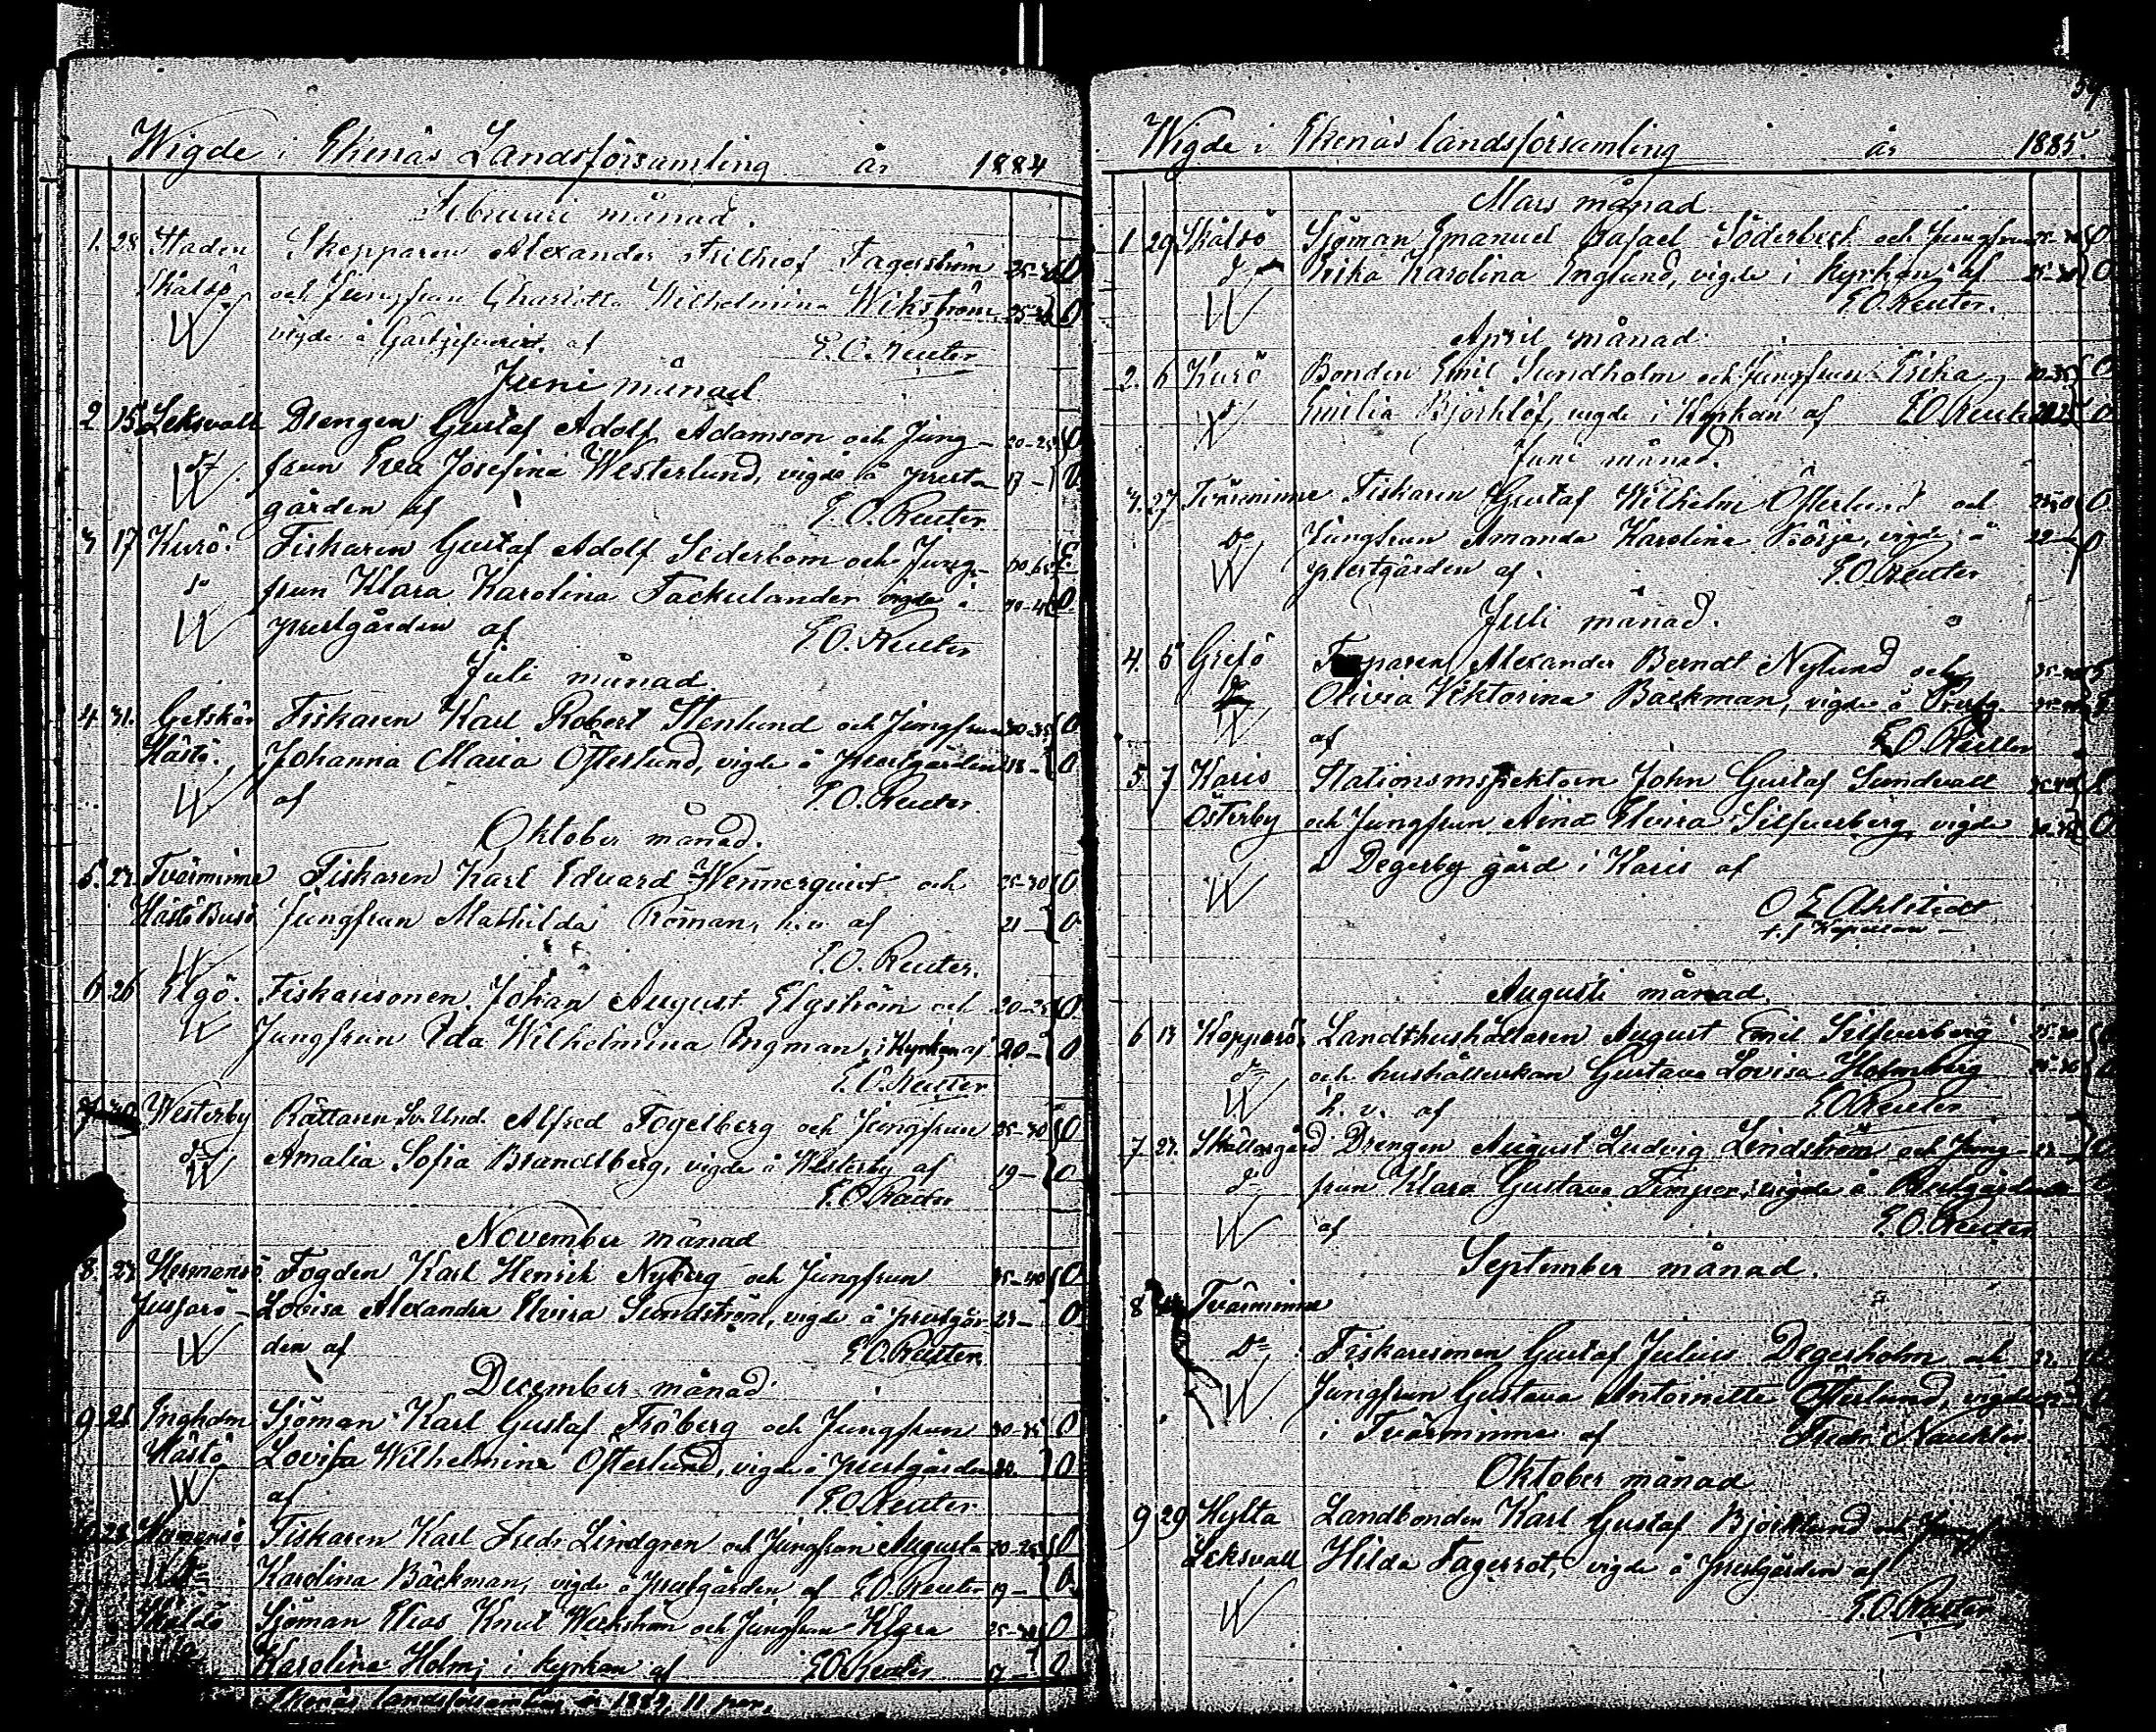 Wigde i Ekenäs Landsförsamling år 1884
Februari månad.
1. 28 Staden Skepparen Alexander Frithiof Fagerström 25-30 0
Skåldö och Jungfrun Charlotta Wilhelmina Wikström 25-30 0
vigde å Gästgifveriet af E. O. Reuter
Juni månad
2 15 Leksvall Drengen Gustaf Adolf Adamson och Jung- 20-25 0
frun Eva Josefina Westerlund, vigde å prest- 17- 0
gården af E. O. Reuter
3 17 Kurö. Fiskaren Gustaf Adolf Sederbom och Jung- 60-65
frun Klara Karolina Tackulander vigde å 40-45 0
prestgården af E. O. Reuter
Juli månad
4. 31. Getskär Fiskaren Karl Robert Stenlund och Jungfrun 30-35 0
Hästö. Johanna Maria Österlund, vigde å prestgården 18- 0
af E. O. Reuter.
Oktober månad.
5. 23. Tvärminne Fiskaren Karl Eduard Wennerquist och 25-30 0
Hästö Busö Jungfrun Mathilda Roman, h. v. af 21- 0
E. O. Reuter.
6 26 Elgö. Fiskaresonen Johan August Elgström och 20-25 0
Jungfrun Ida Wilhelmina Ingman, i Kyrkan af 20- 0
E. O. Reuter
7 30 Westerby Rättaren Alfred Fogelberg och Jungfrun 25-30 0
Amalia Sofia Brandtberg, vigde å Westerby af 19- 0
E. O. Reuter
November månad
8. 23. Hermansö Fogden Karl Henrik Nyberg och Jungfrun 35-40 0
Jussarö- Lovisa Alexandra Elvira Sundström, vigde å prestgår- 23- 0
den af E. O. Reuter
December månad
9 26 Engholm Sjöman Karl Gustaf Fröberg och Jungfrun 30-35 0
Hästö Lovisa Wilhelmina Österlund, vigde å prestgården 0
af E. O. Reuter
28 Fiskaren Karl Fredr Lindgren och Jungfrun Augusta 20-25 0
Karolina Bäckman, vigde å prestgården af E. O. Reuter 19- 0
Skåldö Sjöman Elias Knut Weckström och Jungfrun Klara 25-30 0
Karolina Holm, i kyrkan af E. O. Reuter 17- 0
Ekenäs landsförsamling år 1884, 11 par.
Wigde i Ekenäs landsförsamling år 1885.
Mars månad
1 29 Skåldö Sjöman Emanuel Rafael Söderbeck och Jungfrun 0
Erika Karolina Englund, vigde i Kyrkan af 25-30 0
E. O. Reuter.
April månad
2. 6 Kurö Bonden Emil Sundholm och Jungfrun Erika 30-35 0
Emilia Björklöf, vigde i Kyrkan af E. O. Reuter 0
Juni månad.
3. 27 Tvärminne Fiskaren Gustaf Wilhelm Österlund och 0
Do Jungfrun Amanda Karolina Börje, vigde å 22- 0
prestgården af E. O. Reuter
Juli månad.
4. 5 Grefö Alexander Berndt Nylund och 35-40
Olivia Viktorina Bäckman, vigde å Prestg.
af E. O. Reuter
5. 7 Karis Stationsinspektorn John Gustaf Sundvall 35-40
Österby och Jungfrun Aina Elvira Silfverberg vigde 0
å Degerby gård i Karis af
O E Ahlstedt
t. f. Kapellan
Augusti månad.
6 Kopparö. Landthushållaren August Emil Silfverberg 25-30
och hushållerskan Gustava Lovisa Holmberg
h. v. af E. O. Reuter
7 27. Skällargård Drengen August Ludvig Lindström och Jung-
frun Klara Gustava Timper, vigde å Prestgården
af E. O. Reuter
September månad.
8 Tvärminne
Do Fiskaresonen Gustaf Julius Degerholm och
Jungfrun Gustava Antoinette Österlund, vigde
i Tvärminne af Fredr. Nauklin
Oktober månad
9 29 Hylta Landbonden Karl Gustaf Björklund och Jungf
Leksvall Hilda Fagerrot, vigde å prestgården af
E. O. Reuter